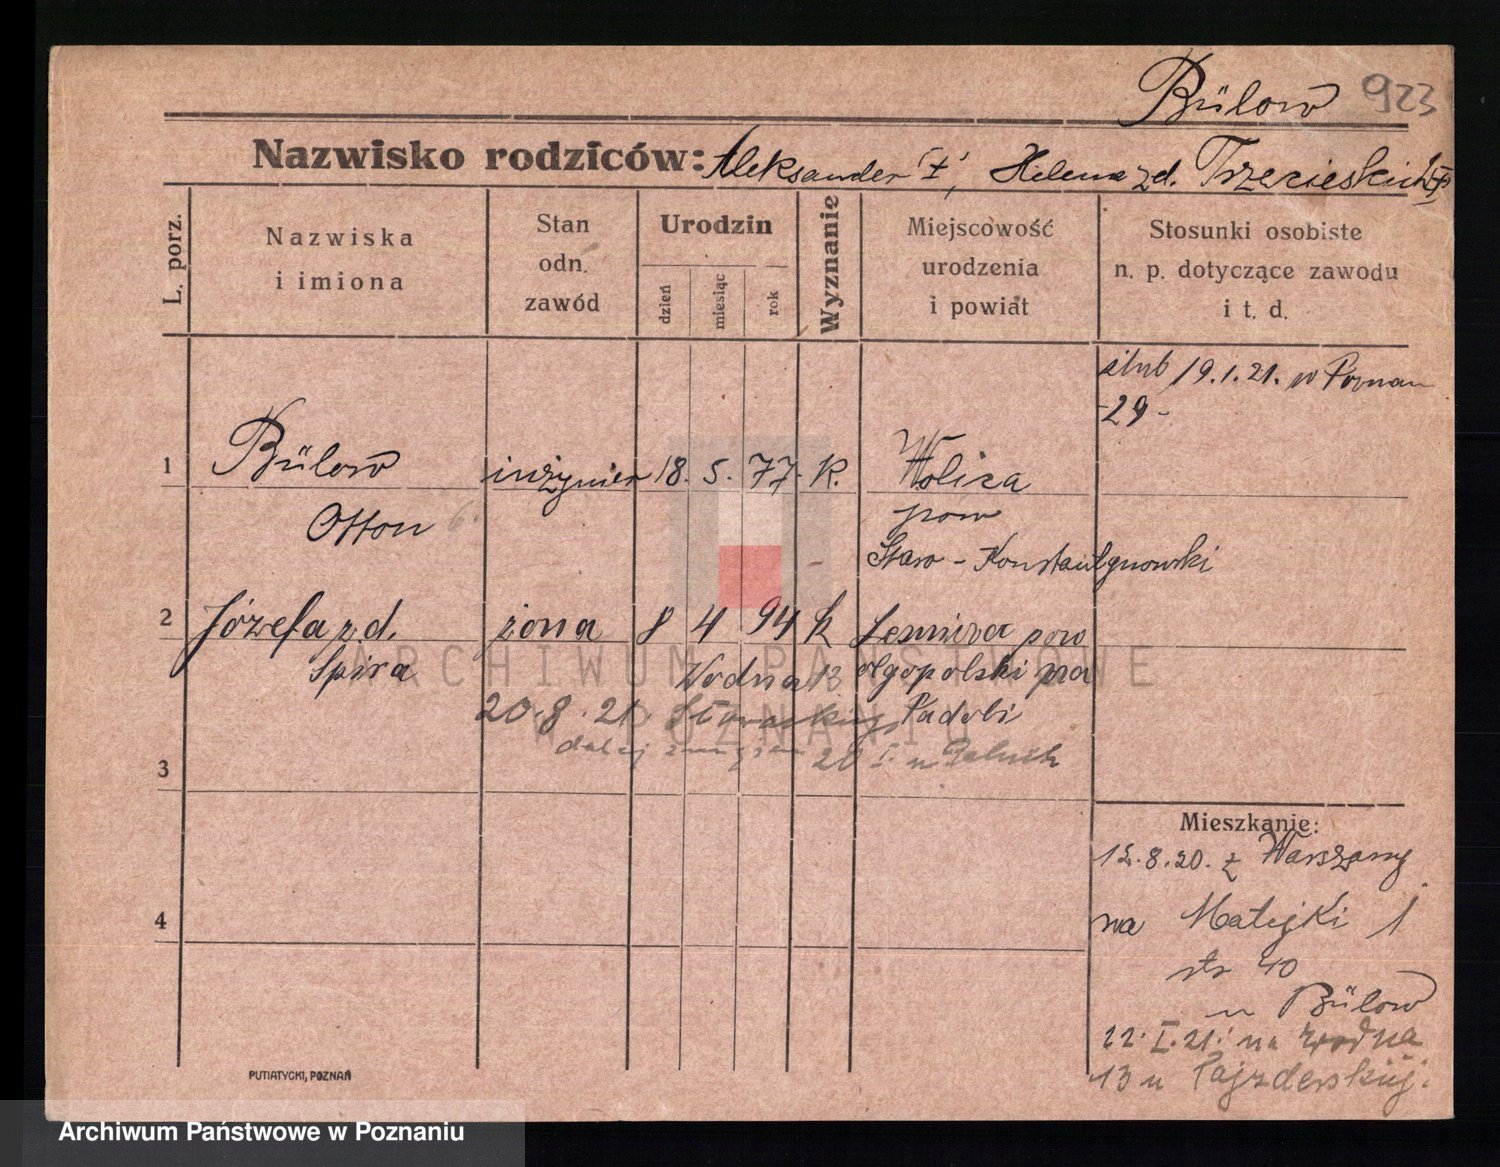 Bülow 923
Nazwisko rodziców: Aleksander †, Helena z d. Trzecieskich †
L. porz.
Nazwiska
i imiona
Stan
odn.
zawód
Urodzin
dzień
miesiąc
rok
Wyznanie
Miejscowość
urodzenia
i powiat
Stosunki osobiste
n. p. dotyczące zawodu
i t. d.
ślub 19.1.21. w Poznan
-29-
1 Bülow inżynier 18. 5. 77. k. Wolica
Otton 6. pow
Staro-Konstantynowski
2 Józefa z d. żona 8 4 94 k pow
Spira Wodna 13 olgopolski
20.8.21 Padoli
3 dalej 20 I u
Mieszkanie:
12.8.20. z Warszawy
4 na Matejki 1
str 40
u Bülow
22. I. 21. na Wodna
13 u Pajzderskiej.
PUTIATYCKI, POZNAŃ
ARCHIWUM PAŃSTWOWE
W POZNANIU
Archiwum Państwowe w Poznaniu